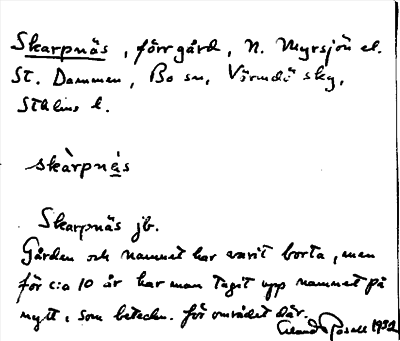 Skarpnäs, förr gård, N. Myrsjön el.
St. Dammen, Bo sn, Värmdö skg,
Sthlms l.
skàrpnä́s
Skarpnäs jb.
Gården och namnet har varit borta, men
för c:a 10 år har man tagit upp namnet på
nytt, som beteckn. för området där.
Rosell 1932